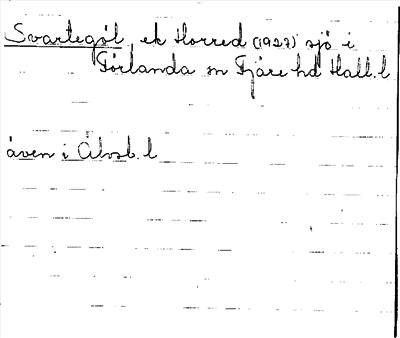 Svartegöl ek Horred (1927) sjö i
Förlanda sn Fjäre hd Hall. l
även i Älvsb. l